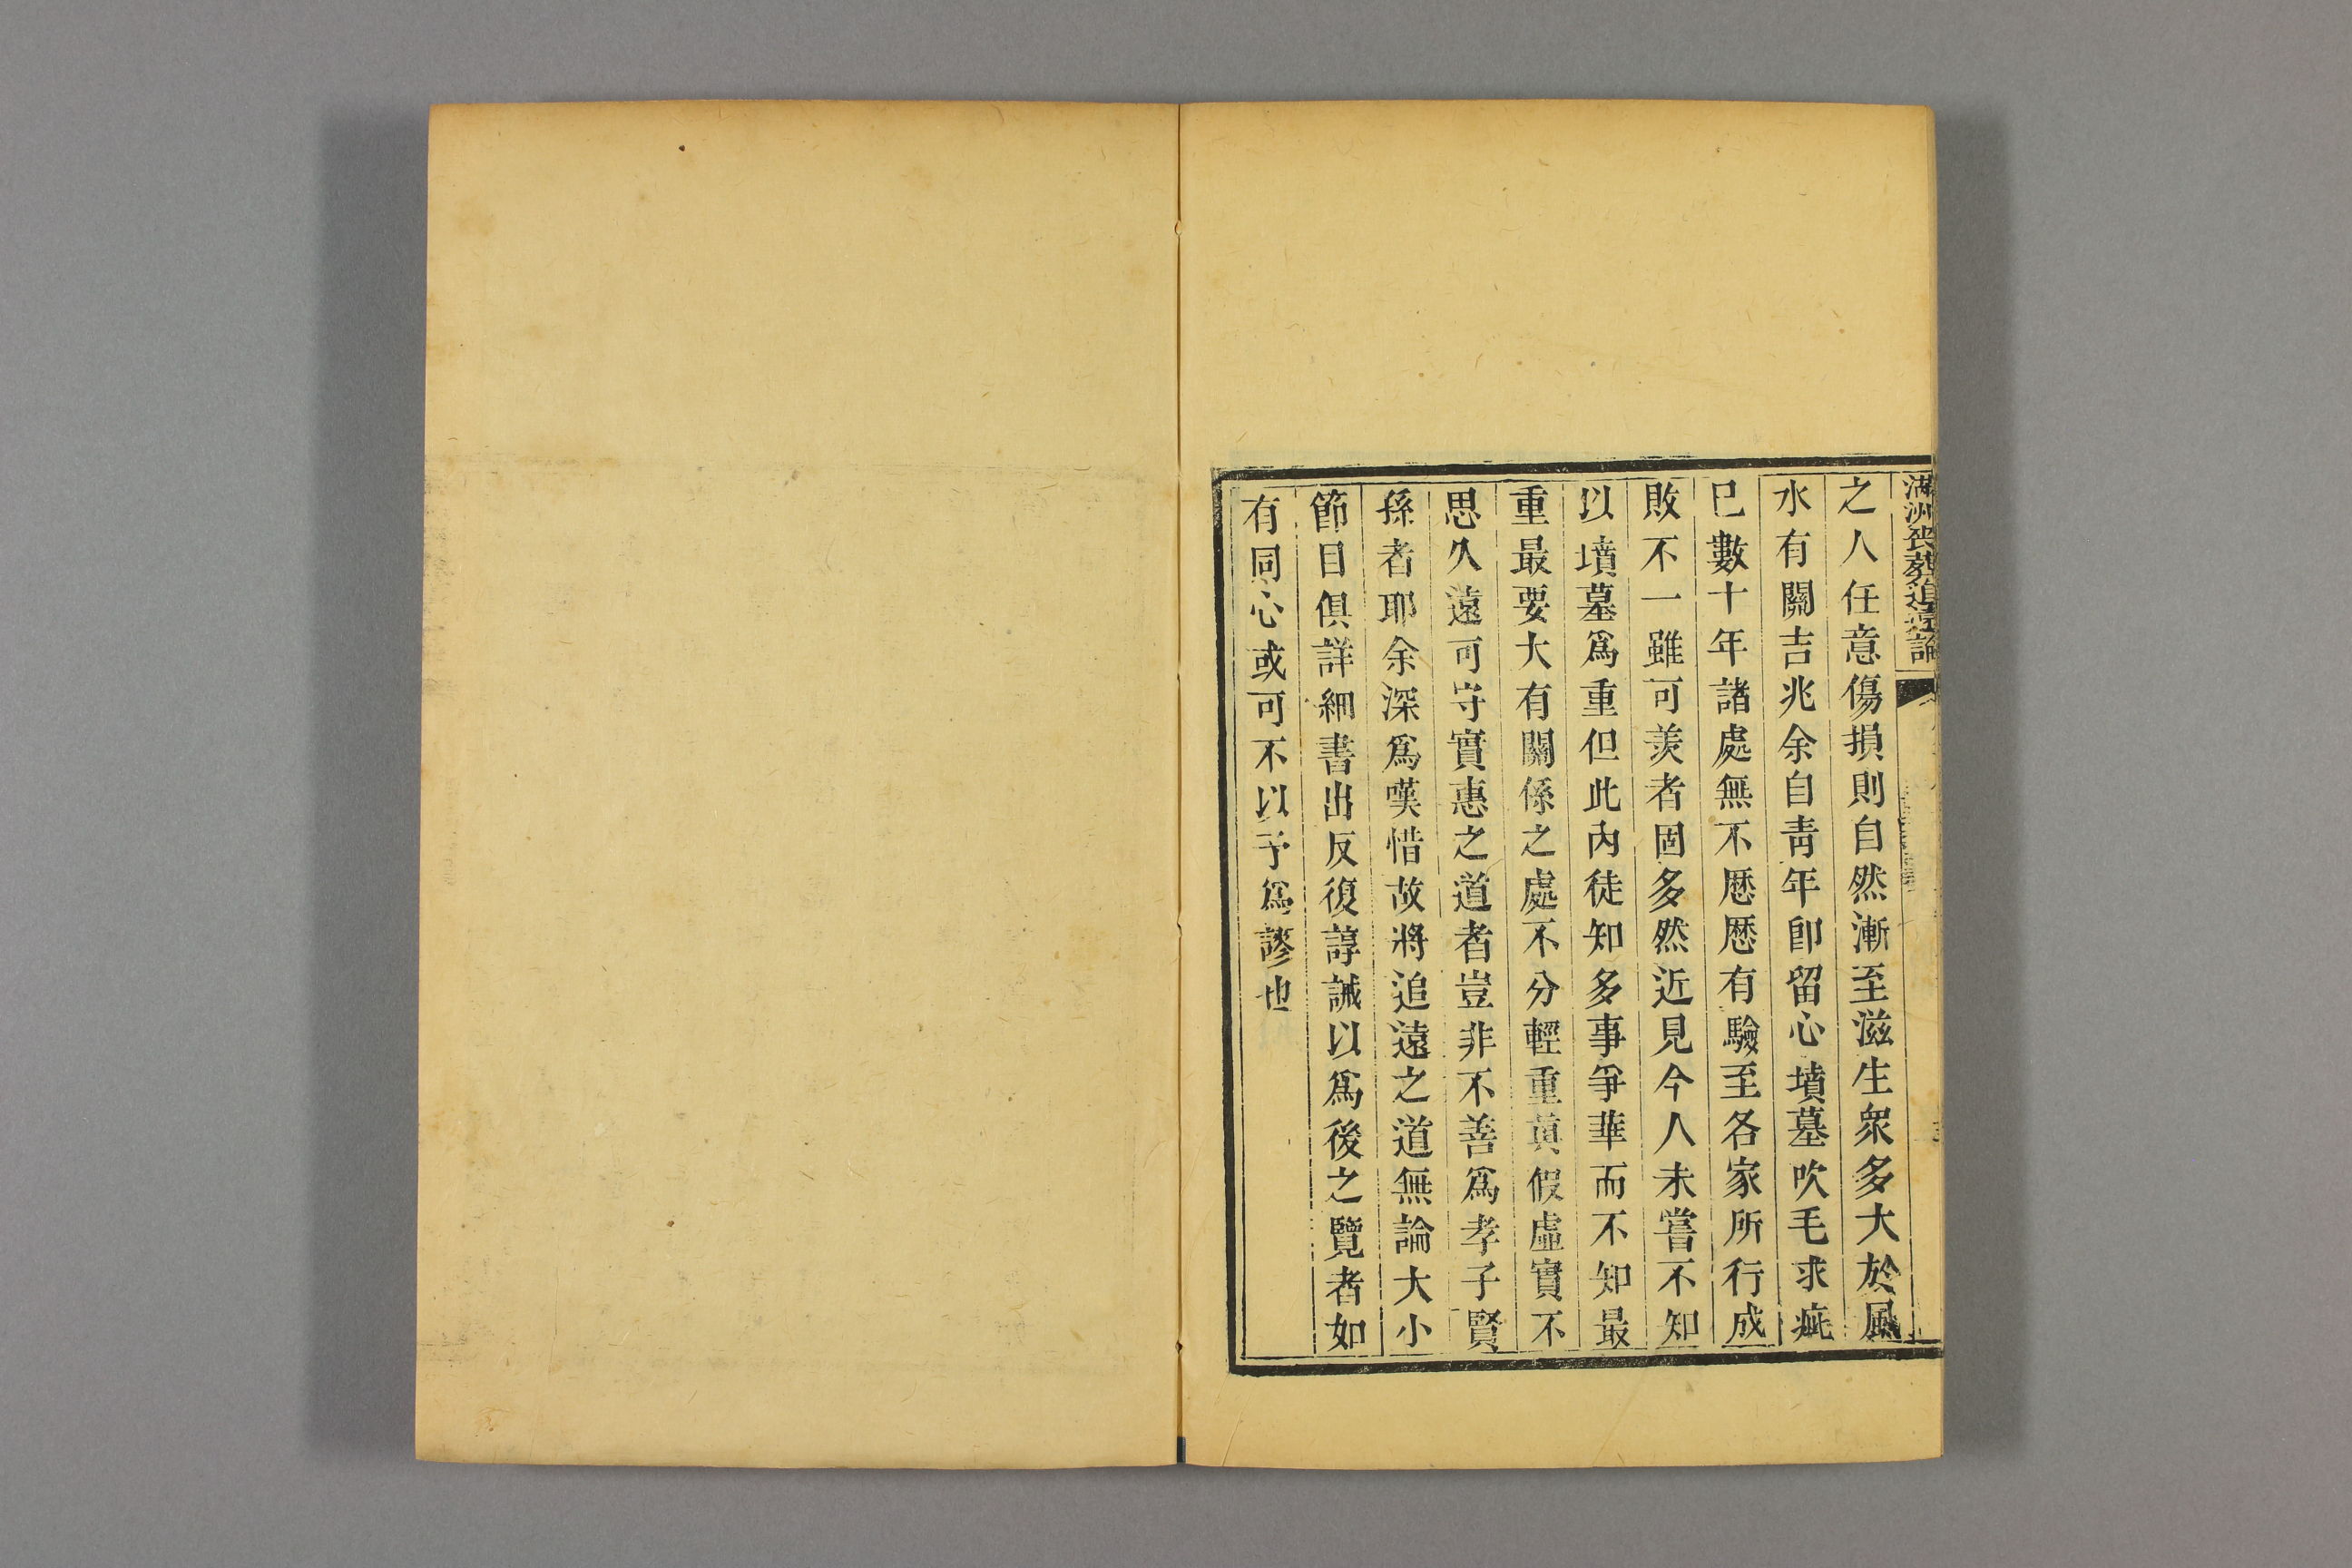 滿洲喪葬追遠論
之人任意傷損則自然漸至滋生衆多大於風
水有關吉兆余自靑年卽留心墳墓吹毛求疵
已數十年諸處無不歷歷有驗至各家所行成
敗不一雖可羨者固多然近見今人未嘗不知
以墳墓爲重但此內徒知多事爭華而不知最
重最要大有關係之處不分輕重真假虛實不
思久遠可守實惠之道者豈非不善爲孝子賢
孫者耶余深爲嘆惜故將追遠之道無論大小
節目俱詳細書出反復諄誡以爲後之覽者如
有同心或可不以予爲謬也